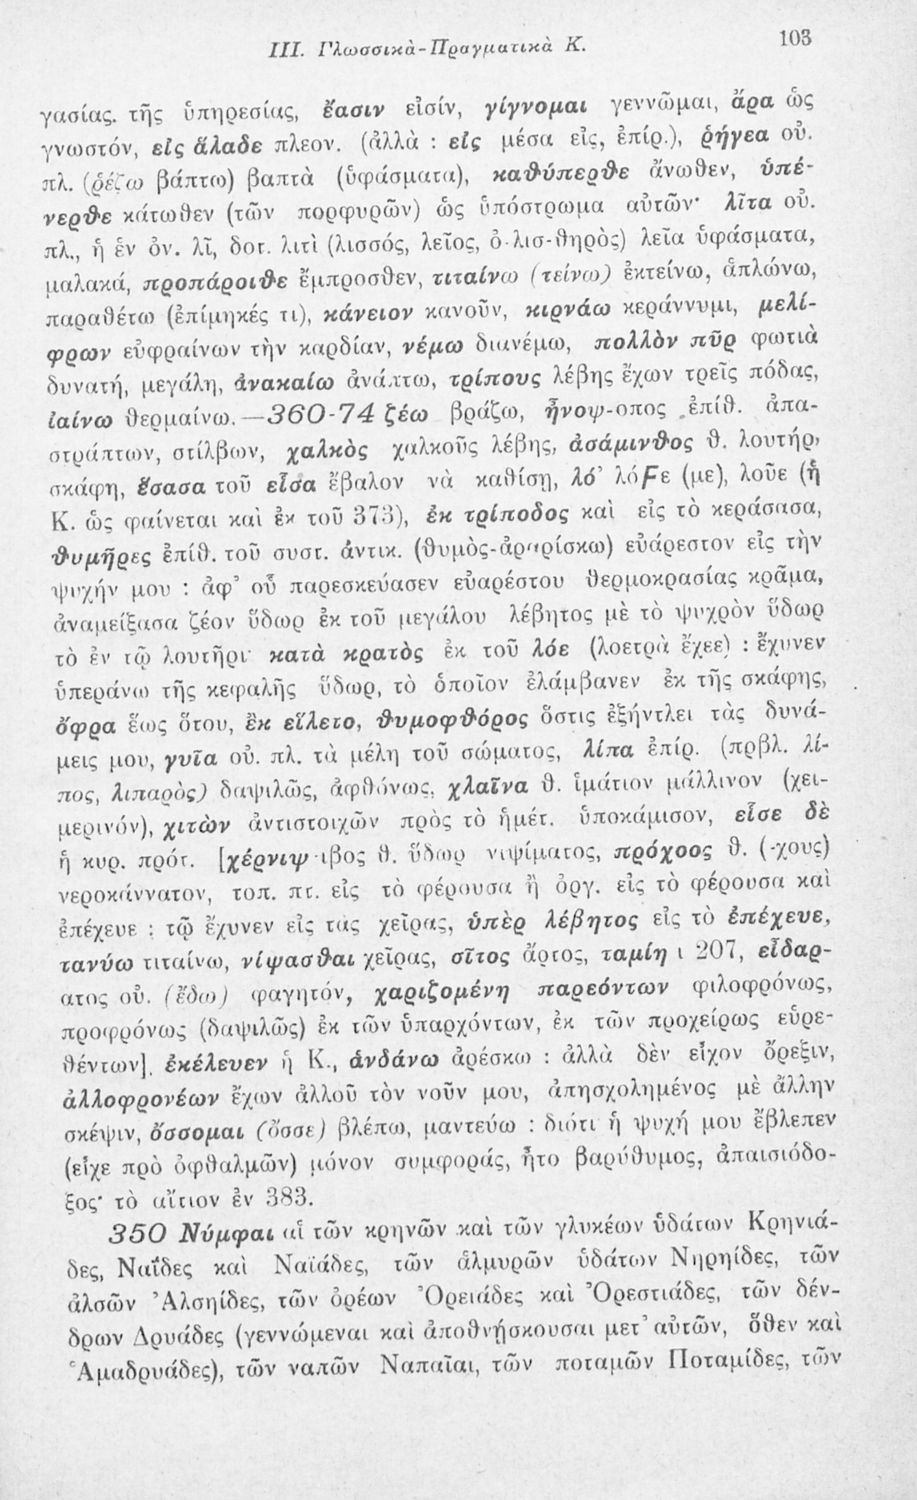 III. Γλωσσικὰ-Πραγματικὰ Κ.
103
γασίας. τῆς ὑπηρεσίας, ἔασιν εἰσίν, γίγνομαι γεννῶμαι, ἄρα ὡς
γνωστόν, εἰς ἅλαδε πλεον. (ἀλλὰ : εἰς μέσα εἰς, ἐπίρ.), ῥήγεα οὐ.
πλ. (ῥέζω βάπτω) βαπτὰ (ὑφάσματα), καθύπερθε ἄνωθεν, ὑπέ-
νερθε κάτωθεν (τῶν πορφυρῶν) ὡς ὑπόστρωμα αὐτῶν· λῖτα οὐ.
πλ., ἡ ἑν ὀν. λῖ, δοτ. λιτὶ (λισσός, λεῖος, ὀ-λισ-θηρὸς) λεῖα ὑφάσματα,
μαλακά, προπάροιθε ἔμπροσθεν, τιταίνω (τείνω) ἐκτείνω, ἁπλώνω,
παραθέτω (ἐπίμηκές τι), κάνειον κανοῦν, κιρνάω κεράννυμι, μελί-
φρων εὐφραίνων τὴν καρδίαν, νέμω διανέμω, πολλὸν πῦρ φωτιὰ
δυνατή, μεγάλη, ἀνακαίω ἀνάπτω, τρίπους λέβης ἔχων τρεῖς πόδας,
ἰαίνω θερμαίνω.—360-74 ζέω βράζω, ἦνοψ-οπος ἐπίθ. ἀπα-
στράπτων, στίλβων, χαλκὸς χαλκοῦς λέβης, ἀσάμινθος θ. λουτήρ,
σκάφη, ἕσασα τοῦ εἷσα ἔβαλον νὰ καθίσῃ, λό' λόϜε (με), λοῦε (ἡ
Κ. ὡς φαίνεται καὶ ἐκ τοῦ 373), ἐκ τρίποδος καὶ εἰς τὸ κεράσασα,
θυμῆρες ἐπίθ. τοῦ συστ. ἀντικ. (θυμὸς-ἀραρίσκω) εὐάρεστον εἰς τὴν
ψυχήν μου : ἀφ' οὗ παρεσκεύασεν εὐαρέστου θερμοκρασίας κρᾶμα,
ἀναμείξασα ζέον ὕδωρ ἐκ τοῦ μεγάλου λέβητος μὲ τὸ ψυχρὸν ὕδωρ
τὸ ἐν τῷ λουτῆρι· κατὰ κρατὸς ἐκ τοῦ λόε (λοετρὰ ἔχεε) : ἔχυνεν
ὑπεράνω τῆς κεφαλῆς ὕδωρ, τὸ ὁποῖον ἐλάμβανεν ἐκ τῆς σκάφης,
ὄφρα ἕως ὅτου, ἐκ εἵλετο, θυμοφθόρος ὅστις ἐξήντλει τὰς δυνά-
μεις μου, γυῖα οὐ. πλ. τὰ μέλη τοῦ σώματος, λίπα ἐπίρ. (πρβλ. λί-
πος, λιπαρὸς) δαψιλῶς, ἀφθόνως, χλαῖνα θ. ἱμάτιον μάλλινον (χει-
μερινόν), χιτὼν ἀντιστοιχῶν πρὸς τὸ ἡμέτ. ὑποκάμισον, εἷσε δὲ
ἡ κυρ. πρότ. [χέρνιψ-ιβος θ. ὕδωρ νιψίματος, πρόχοος θ. (-χους)
νεροκάννατον, τοπ. πτ. εἰς τὸ φέρουσα ἢ ὀργ. εἰς τὸ φέρουσα καὶ
ἐπέχευε : τῷ ἔχυνεν εἰς τὰς χεῖρας, ὑπὲρ λέβητος εἰς τὸ ἐπέχευε,
τανύω τιταίνω, νίψασθαι χεῖρας, σῖτος ἄρτος, ταμίη ι 207, εἶδαρ-
ατος οὐ. (ἔδω) φαγητόν, χαριζομένη παρεόντων φιλοφρόνως,
προφρόνως (δαψιλῶς) ἐκ τῶν ὑπαρχόντων, ἐκ τῶν προχείρως εὑρε-
θέντων]. ἐκέλευεν ἡ Κ., ἁνδάνω ἀρέσκω : ἀλλὰ δὲν εἶχον ὄρεξιν,
ἀλλοφρονέων ἔχων ἀλλοῦ τὸν νοῦν μου, ἀπησχολημένος μὲ ἄλλην
σκέψιν, ὄσσομαι (ὄσσε) βλέπω, μαντεύω : διότι ἡ ψυχή μου ἔβλεπεν
(εἶχε πρὸ ὀφθαλμῶν) μόνον συμφοράς, ἦτο βαρύθυμος, ἀπαισιόδο-
ξος· τὸ αἴτιον ἐν 383.
350 Νύμφαι αἱ τῶν κρηνῶν καὶ τῶν γλυκέων ὑδάτων Κρηνιά-
δες, Ναΐδες καὶ Ναϊάδες, τῶν ἁλμυρῶν ὑδάτων Νηρηίδες, τῶν
ἀλσῶν Ἀλσηίδες, τῶν ὀρέων Ὀρειάδες καὶ Ὀρεστιάδες, τῶν δέν-
δρων Δρυάδες (γεννώμεναι καὶ ἀποθνῄσκουσαι μετ' αὐτῶν, ὅθεν καὶ
Ἁμαδρυάδες), τῶν ναπῶν Ναπαῖαι, τῶν ποταμῶν Ποταμίδες, τῶν